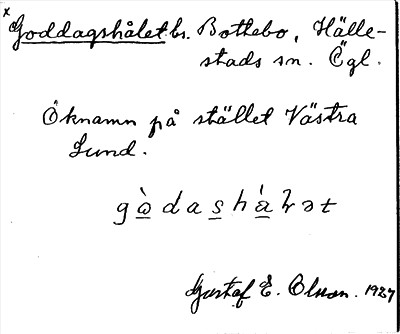 x Goddagshålet bs. Bottebo, Hälle-
stads sn. Ögl.
Öknamn på stället Västra
Lund.
Gustaf E. Olsson. 1927